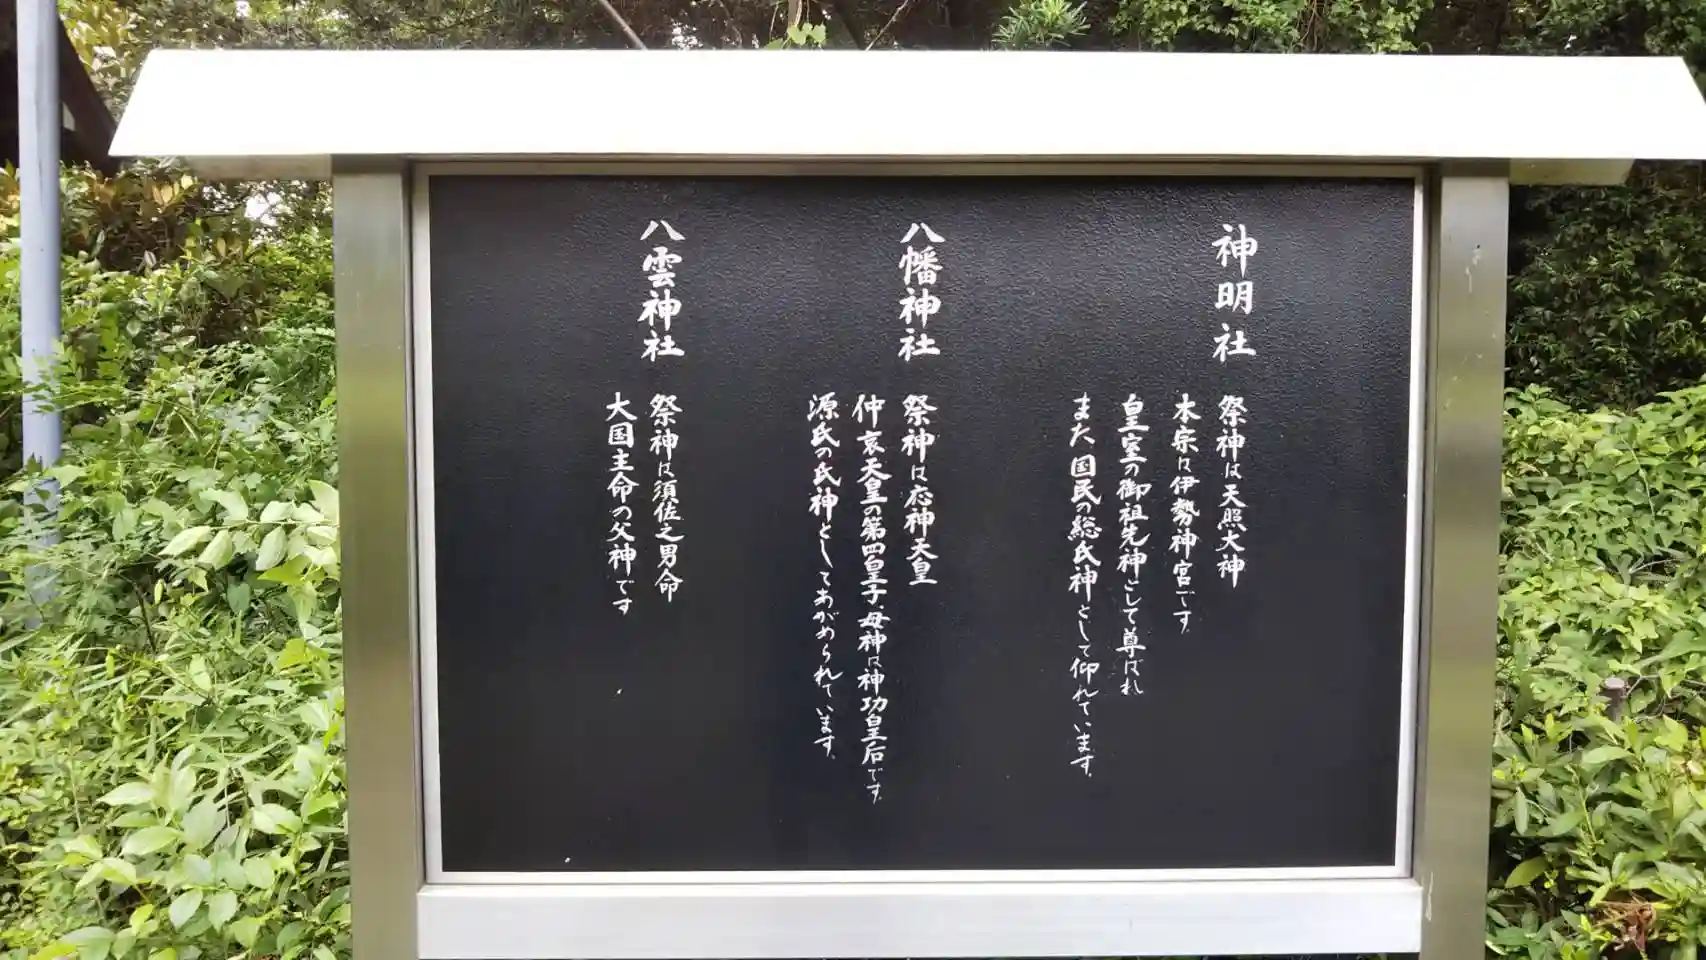 神明社
祭神は天照大神
本宗は伊勢神宮です
皇室の御祖先神として尊ばれ
また国民の総氏神として仰れています。
八幡神社
祭神は応神天皇
仲哀天皇の第四皇子、母神は神功皇后です
源氏の氏神としてあがめられています。
八雲神社
祭神は須佐之男命
大国主命の父神です